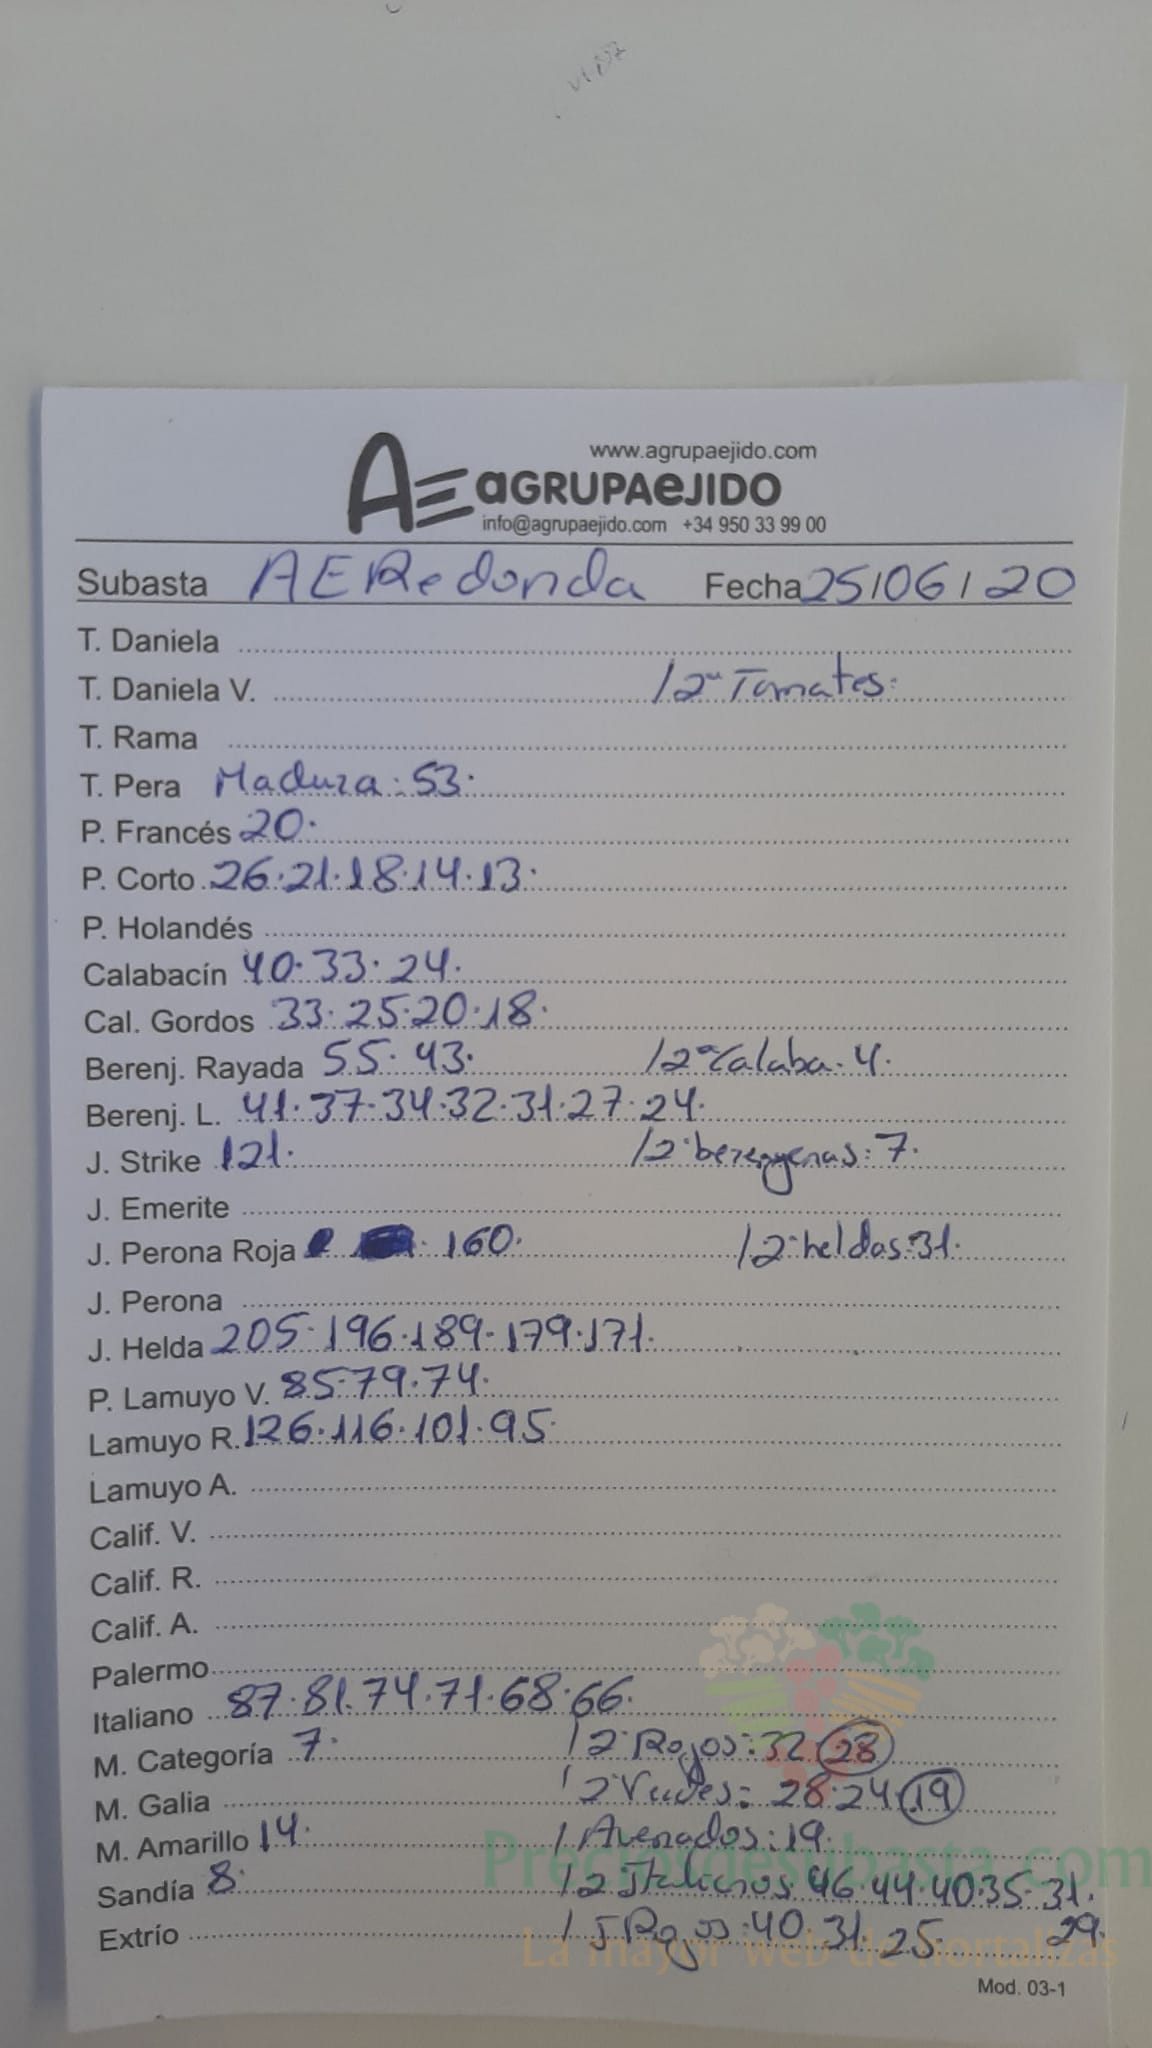 www.agrupaejido.com
AE aGRUPAeJIDO
info@agrupaejido.com +34 950 33 99 00
Subasta AE Redonda Fecha 25/06/20
T. Daniela
T. Daniela V. /2ª Tomates:
T. Rama
T. Pera Madura: 53.
P. Francés 20.
P. Corto 26.21.18.14.13.
P. Holandés
Calabacín 40.33.24.
Cal. Gordos 33.25.20.18.
Berenj. Rayada 55.43. /2ª Calaba. 4.
Berenj. L. 41.37.34.32.31.27.24.
J. Strike 121. /2ª berengenas: 7.
J. Emerite
J. Perona Roja 160. /2ª heldas: 31.
J. Perona
J. Helda 205.196.189.179.171.
P. Lamuyo V. 85.79.74.
Lamuyo R. 126.116.101.95.
Lamuyo A.
Calif. V.
Calif. R.
Calif. A.
Palermo
Italiano 87.81.74.71.68.66.
M. Categoría 7. /2ª Rojos: 32 23
M. Galia /2ª Verdes: 28.24.19
M. Amarillo 14. / Avenados: 19.
Sandía 8. /2ª Italianos 46.44.40.35.31.
29.
Extrío / J Rojos: 40.31.25.
Preciosdesubasta.com
La mayor web de hortalizas
Mod. 03-1